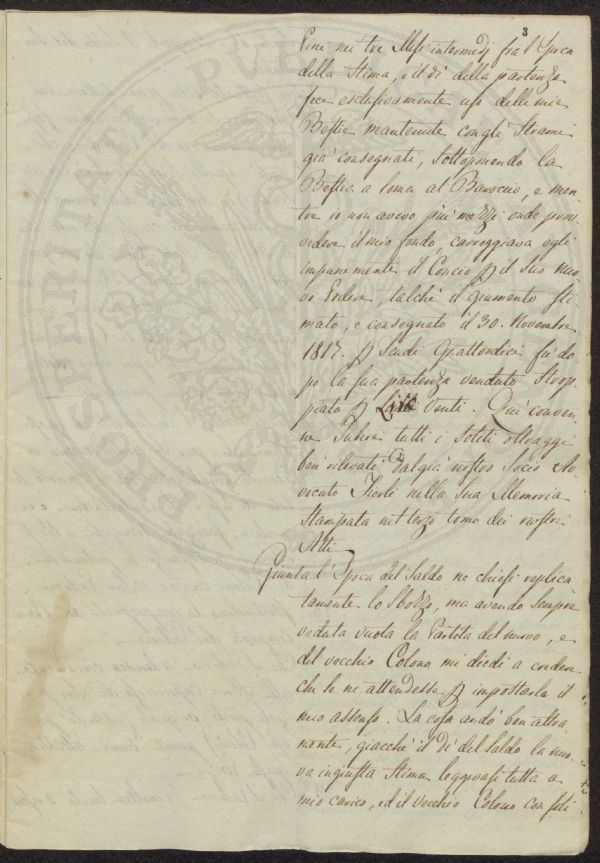 3
Pene nei tre Mesi intermedj fra l'Epoca
della Stima, e il dì della partenza
fece esclusivamente uso delle mie
Bestie mantenute con gli Strami
già consegnati, sottoponendo la
Bestia a soma al Baroccio, e men-
tre io non avevo più mezzi onde prov-
vedere il mio fondo, carreggiava egli
impunemente il Concio p il suo nuo-
vo Podere, talchè il giumento sti-
mato, e consegnato il 30. Novembre
1817. p Scudi Quattordici fu do-
po la sua partenza venduto Strop-
piato p Lire Venti. Qui conven-
ne subire tutti i soliti oltraggi
ben rilevati dal già nostro Socio Av-
vocato nella sua Memoria
Stampata nel terzo tomo dei nostri
Atti
Giunta l'Epoca del Saldo ne chiesi replica-
tamente lo Sbozzo, ma avendo sempre
veduta vuota la Partita del nuovo, e
del vecchio Colono mi diedi a credere
che se ne attendesse p impostarla il
mio assenso. La cosa andò ben altra-
mente, giacchè il dì del Saldo la nuo-
va ingiusta Stima leggevasi tutta a
mio carico, ed il vecchio Colono con soli
PROSPERITATI PUBLICAE